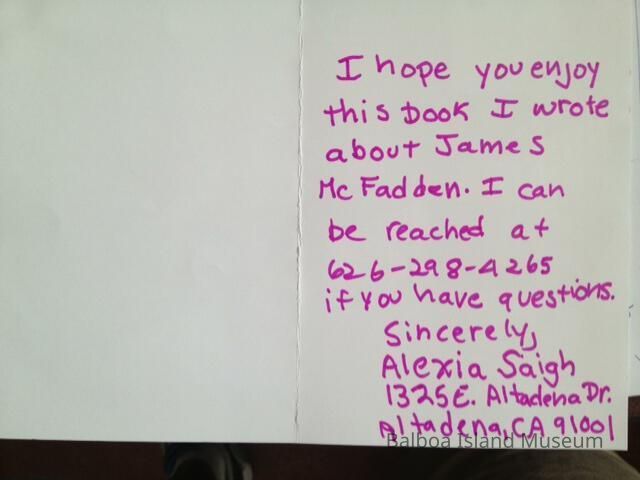 I hope you enjoy
this book I wrote
about James
McFadden. I can
be reached at
626-298-4265
if you have questions.
Sincerely,
Alexia Saigh
1325 E. Altadena Dr.
Altadena, CA 91001
Balboa Island Museum